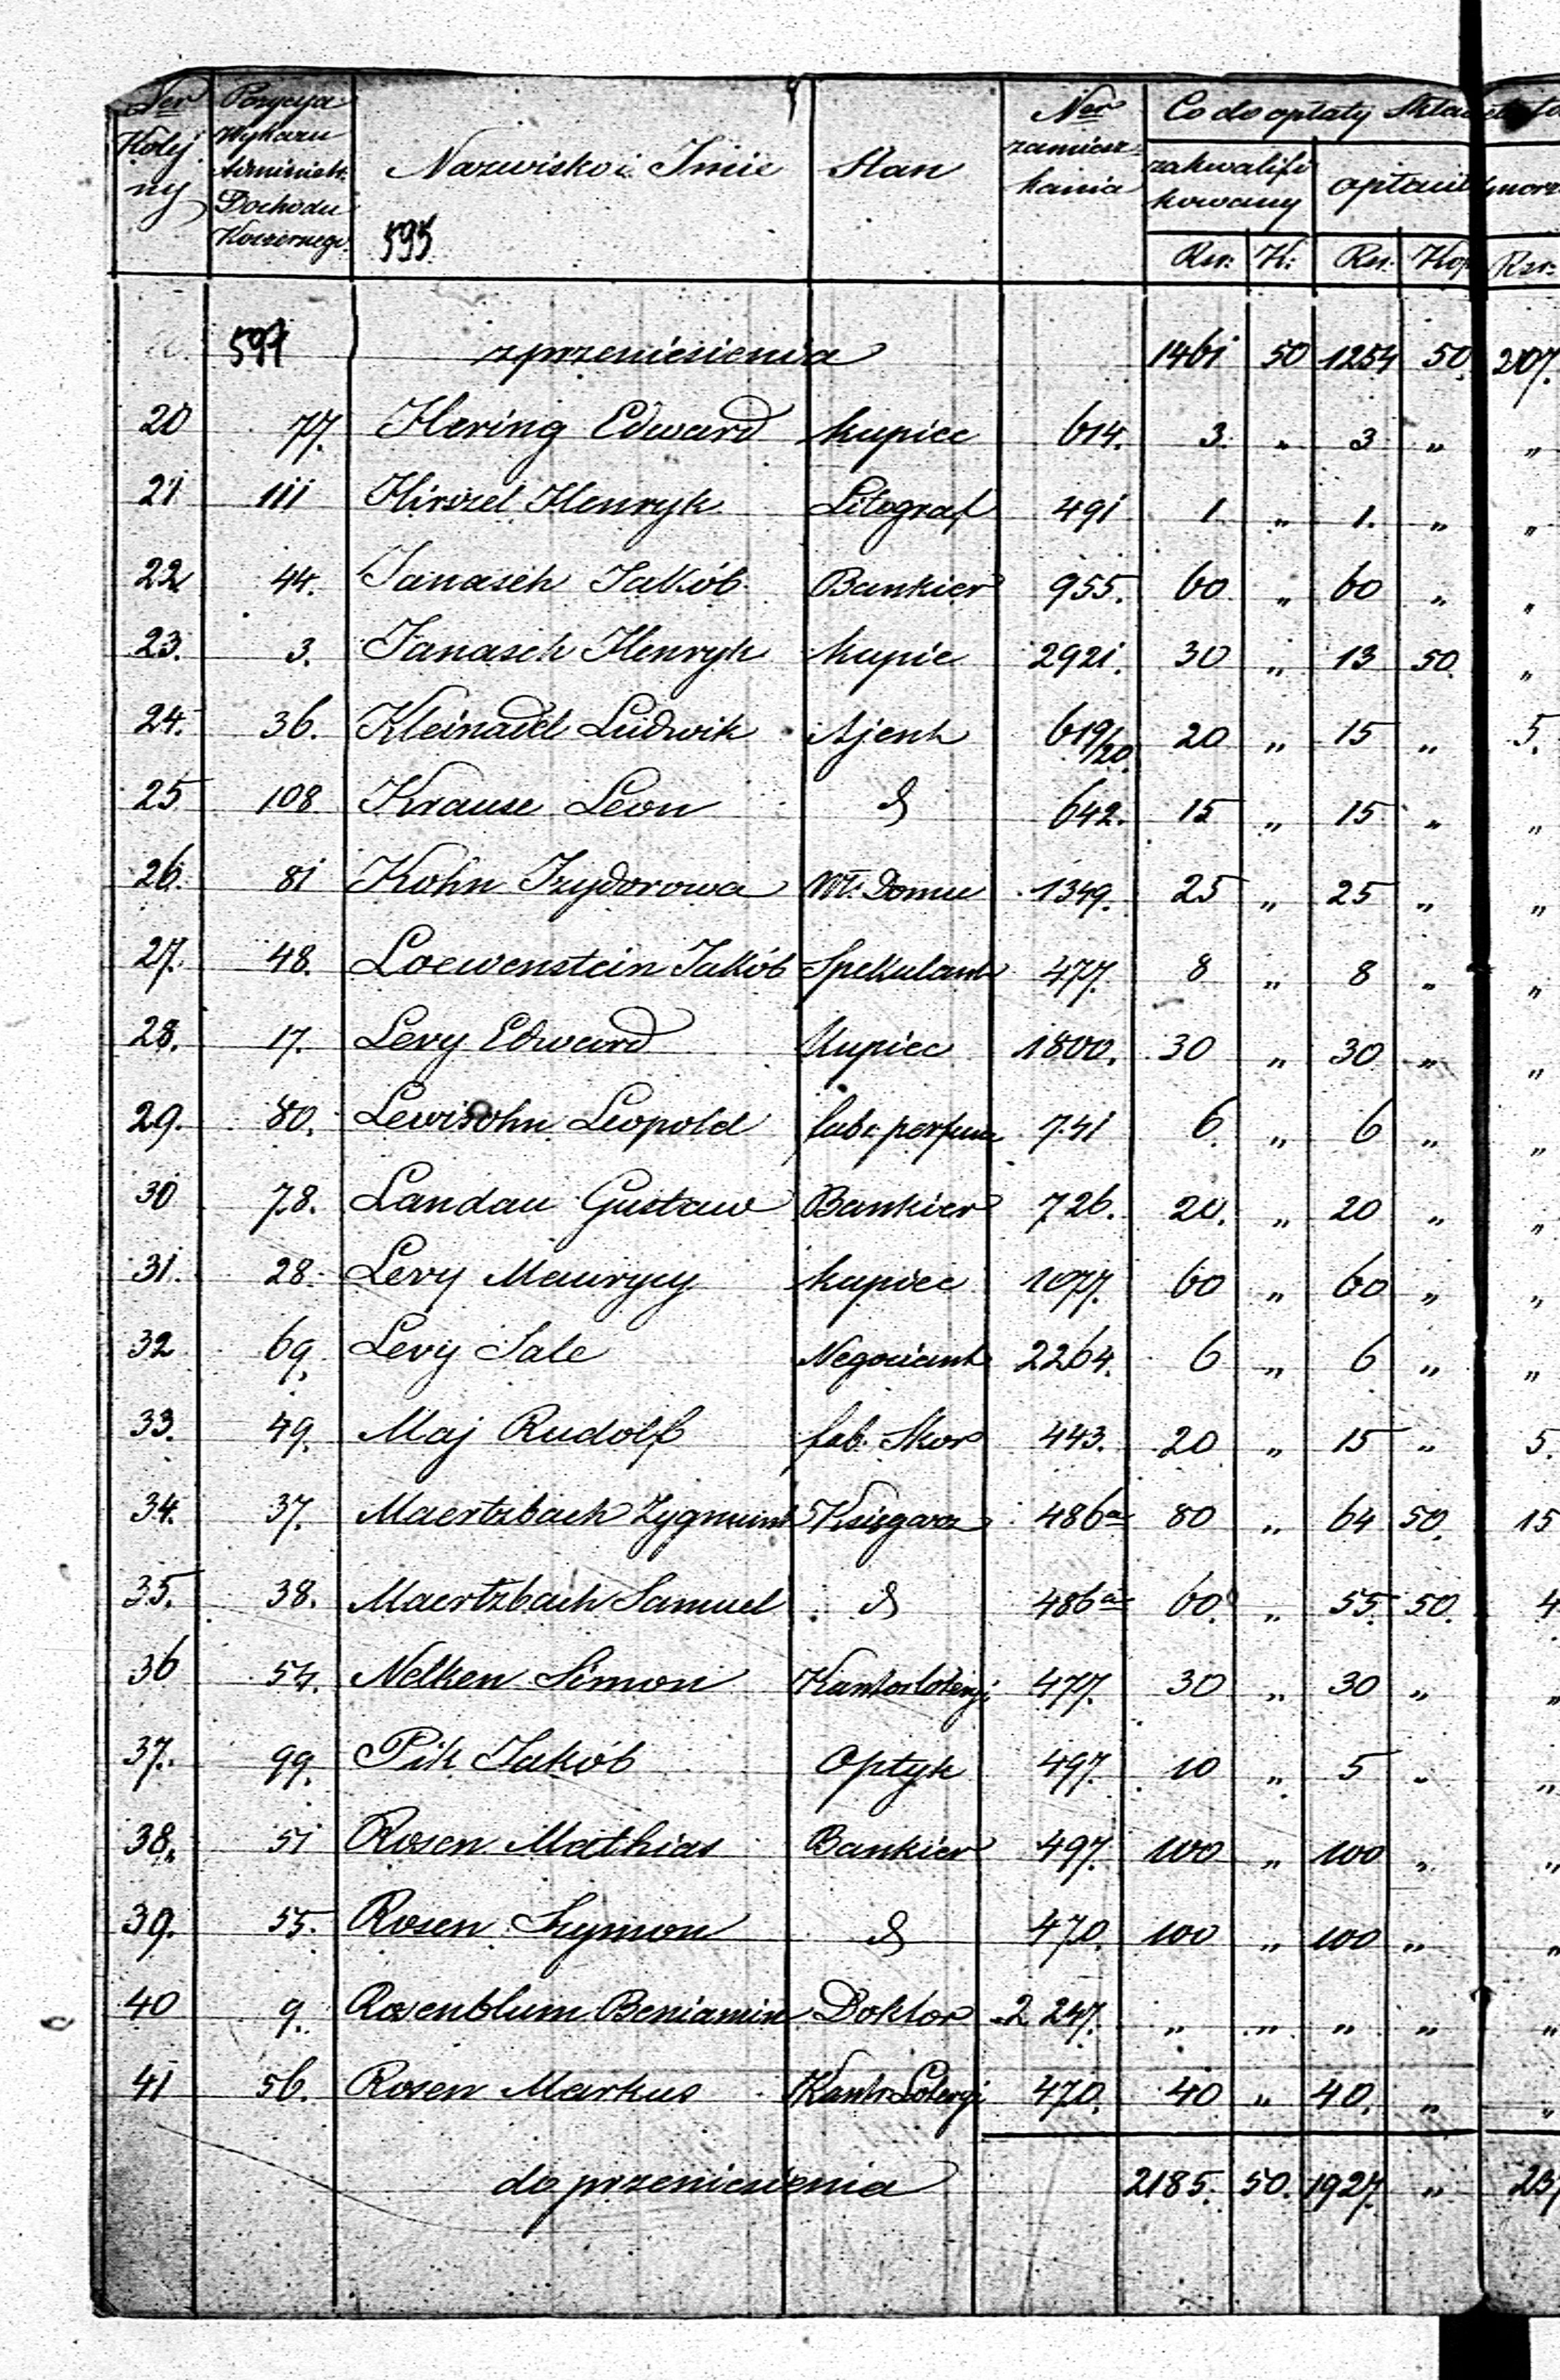 Ner Kolejny | Pozycya Wykazu Administr. Dochodu Koszernego | Nazwisko i Imie | Stan | Ner zamieszkania | Co do opłaty Składek
zakwalifikowany | opłacił | umorz
595 | Rsr. | K: | Rsr. | Kop | Rsr.
597 z przeniesienia 1461 50 1254 50. 207.
20 77. Hering Edward kupiec 614. 3. „ 3 „ „
21 111 Hirszel Henryk Litograf 491 1 „ 1. „ „
22 44. Janasch Jakób Bankier 955. 60 „ 60 „ „
23. 3. Janasch Henryk kupie 2921. 30 „ 13 50. „
24. 36. Kleinadel Ludwik Ajent 619/20. 20 „ 15 „ 5.
25 108 Krause Leon d 642. 15 „ 15 „ „
26. 81 Kohn Izydorowa Wł. Domu 1349. 25 „ 25 „ „
27. 48. Loewenstein Jakób Spekulant 477. 8 „ 8 „ „
28. 17. Levy Edward Kupiec 1800. 30 „ 30 „ „
29. 80. Lewisohn Leopold fabr. perfum 741 6. „ 6 „ „
30 78. Landau Gustaw Bankier 726. 20. „ 20 „ „
31. 28. Levy Maurycy kupiec 1077. 60 „ 60 „ „
32 69. Levy Sale Negociant 2264. 6 „ 6 „ „
33. 49. Maj Rudolf fab. Skor 443. 20 „ 15 „ 5.
34. 37. Maertzbach Zygmunt Księgarz 486a 80 „ 64 50. 15
35. 38. Maertzbach Samuel d 486a 60. „ 55. 50. 4
36 54. Nelken Simon Kantor loteryi 477. 30 „ 30 „ „
37. 99. Pik Jakób Optyk 497. 10 „ 5 „ „
38. 51 Rosen Mathias Bankier 497. 100 „ 100 „ „
39. 55. Rosen Szymon d 470. 100 „ 100 „ „
40 9. Rosenblum Beniamin Doktor 2247. „ „ „ „ „
41 56. Rosen Markus Kant. Loteryi 470. 40 „ 40. „ „
do przeniesienia 2185. 50. 1927. „ 23